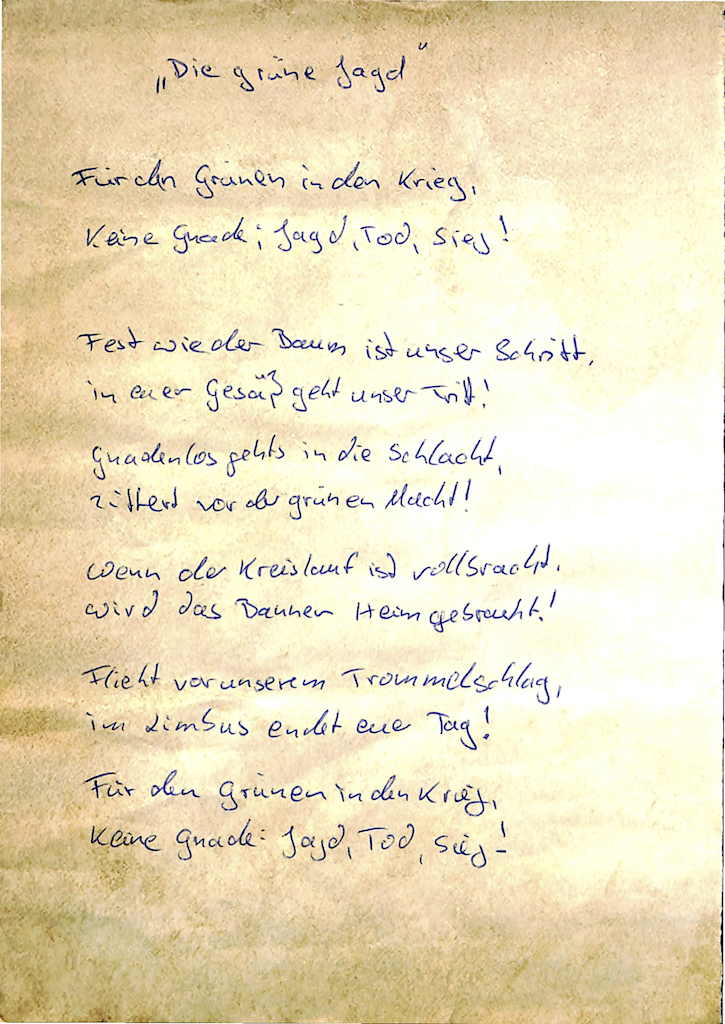 „Die grüne Jagd“
Für den Grünen in den Krieg,
Keine Gnade; Jagd, Tod, Sieg!
Fest wie der Baum ist unser Schritt,
in euer Gesäß geht unser Tritt!
Gnadenlos gehts in die Schlacht,
zittert vor der grünen Macht!
Wenn der Kreislauf ist vollbracht,
wird das Banner Heim gebracht!
Flieht vor unserem Trommelschlag,
im Limbus endet euer Tag!
Für den Grünen in den Krieg,
Keine Gnade: Jagd, Tod, Sieg!